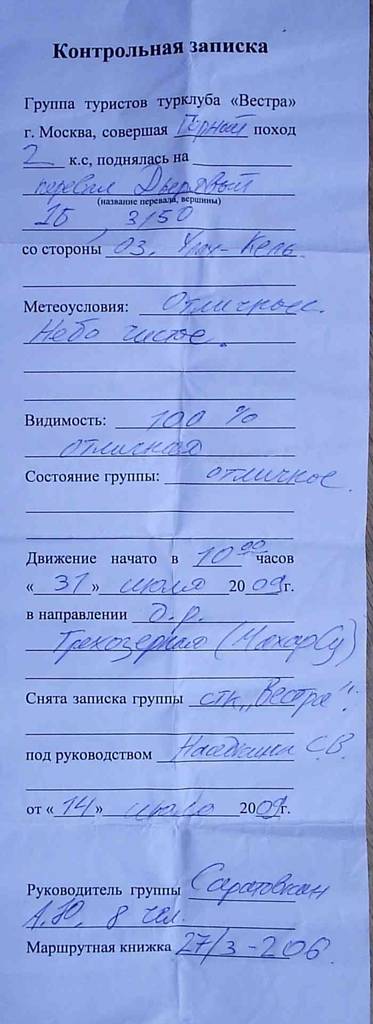 Контрольная записка
Группа туристов турклуба «Вестра»
г. Москва, совершая Горный поход
2 к.с, поднялась на
перевал Дверявый
(название перевала, вершины)
1Б, 3150
со стороны оз. Уллу-Кель
Метеоусловия: Отличные.
Небо чистое.
Видимость: 100 %
отличная
Состояние группы: отличное.
Движение начато в 10 00 часов
«31» июля 2009г.
в направлении д.р.
Трехозерная (МахарСу)
Снята записка группы стк „Вестра".
под руководством С.В.
от «14» июля 2009г.
Руководитель группы
А.Ю. 8 чел.
Маршрутная книжка 27/3-206.